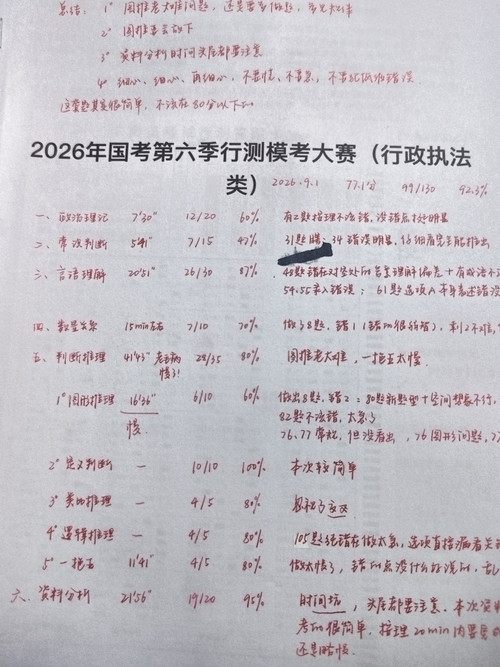 总结: 1° 图推老大难问题, 还是要多做题, 多见规律
2° 图推要云放下
3° 资料分析时间头尾都要注意
4° 细心、细心、再细心, 不要慌、不要急, 不要犯低级错误
这套题其实很简单, 不该在80分以下的。
2026年国考第六季行测模考大赛（行政执法
类） 2026.9.1 77.1分 99/130 92.3%
一、政治理论 7'30" 12/20 60% 有2题按理不该错, 没错点挺明显
二、常识判断 5'41" 7/15 47% 31题瞎; 34错误明显, 仔细看完全能推出
三、言语理解 20'51" 26/30 87% 48题错在对空处的含义理解偏差+有成语不
54.55亲入错误; 61题选项A本身表述错误
四、数量关系 15min左右 7/10 70% 做了8题, 错1(错的很舒服), 剩2不难,
五、判断推理 41'43" 老毛病 28/35 80% 图推老大难, 一拖五太慢
慢了!
1° 图形推理 16'36" 6/10 60% 做出8题, 错2: 80题新题型+空间想象不行,
慢. 82题不该错, 太急了
76、77常规, 但没看出, 76图形问题, 7
2° 定义判断 — 10/10 100% 本次较简单
3° 类比推理 — 4/5 80%
4° 逻辑推理 — 4/5 80% 105题纯错在做太急, 选项直接漏看关
5° 一拖五 11'41" 4/5 80% 做太慢了, 错的点没什么好说的,
六、资料分析 21'56" 19/20 95% 时间坑, 头尾都要注意. 本次资
考的很简单, 按理20min内要
还是略慢.